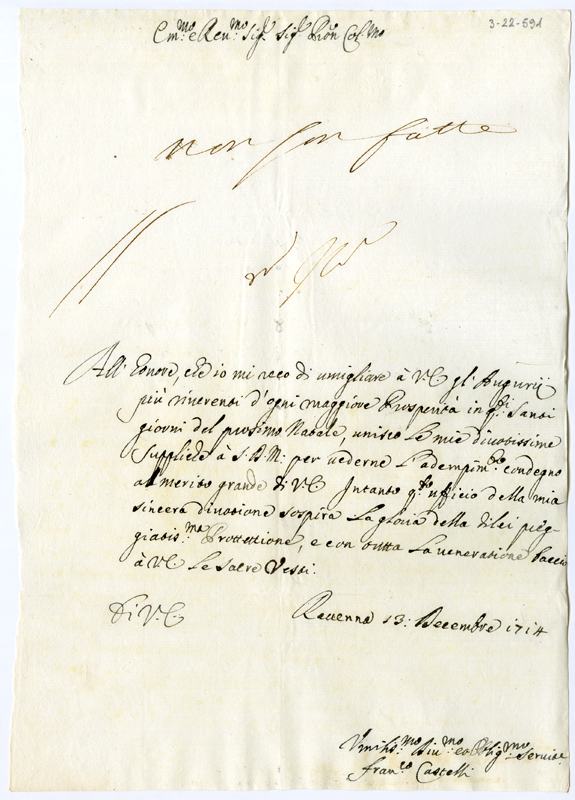 3-22-591
Em.mo e Reu.mo Sig.r Sig.r Pron Col.mo
non son fatte
All' honore, che io mi reco di umigliare à V.E. gl' Augurij
più riuerenti d'ogni maggiore Prosperità in q.ti Santi
giorni del prosimo Natale, unisco le mie diuotissime
suppliche à S.D.M: per uederne l'adempim.to condegno
al merito grande di V.E. Intanto q.to ufficio della mia
sincera diuotione sospira la gloria della dilei preg-
giatis.ma Prottettione, e con tutta la ueneratione baccio
à V.E. le Sacre Vesti.
Di V.E.
Rauenna 13: Decembre 1714
Vmilis.mo Diu.mo et Oblig.mo Seruitre
Fran.co Castelli